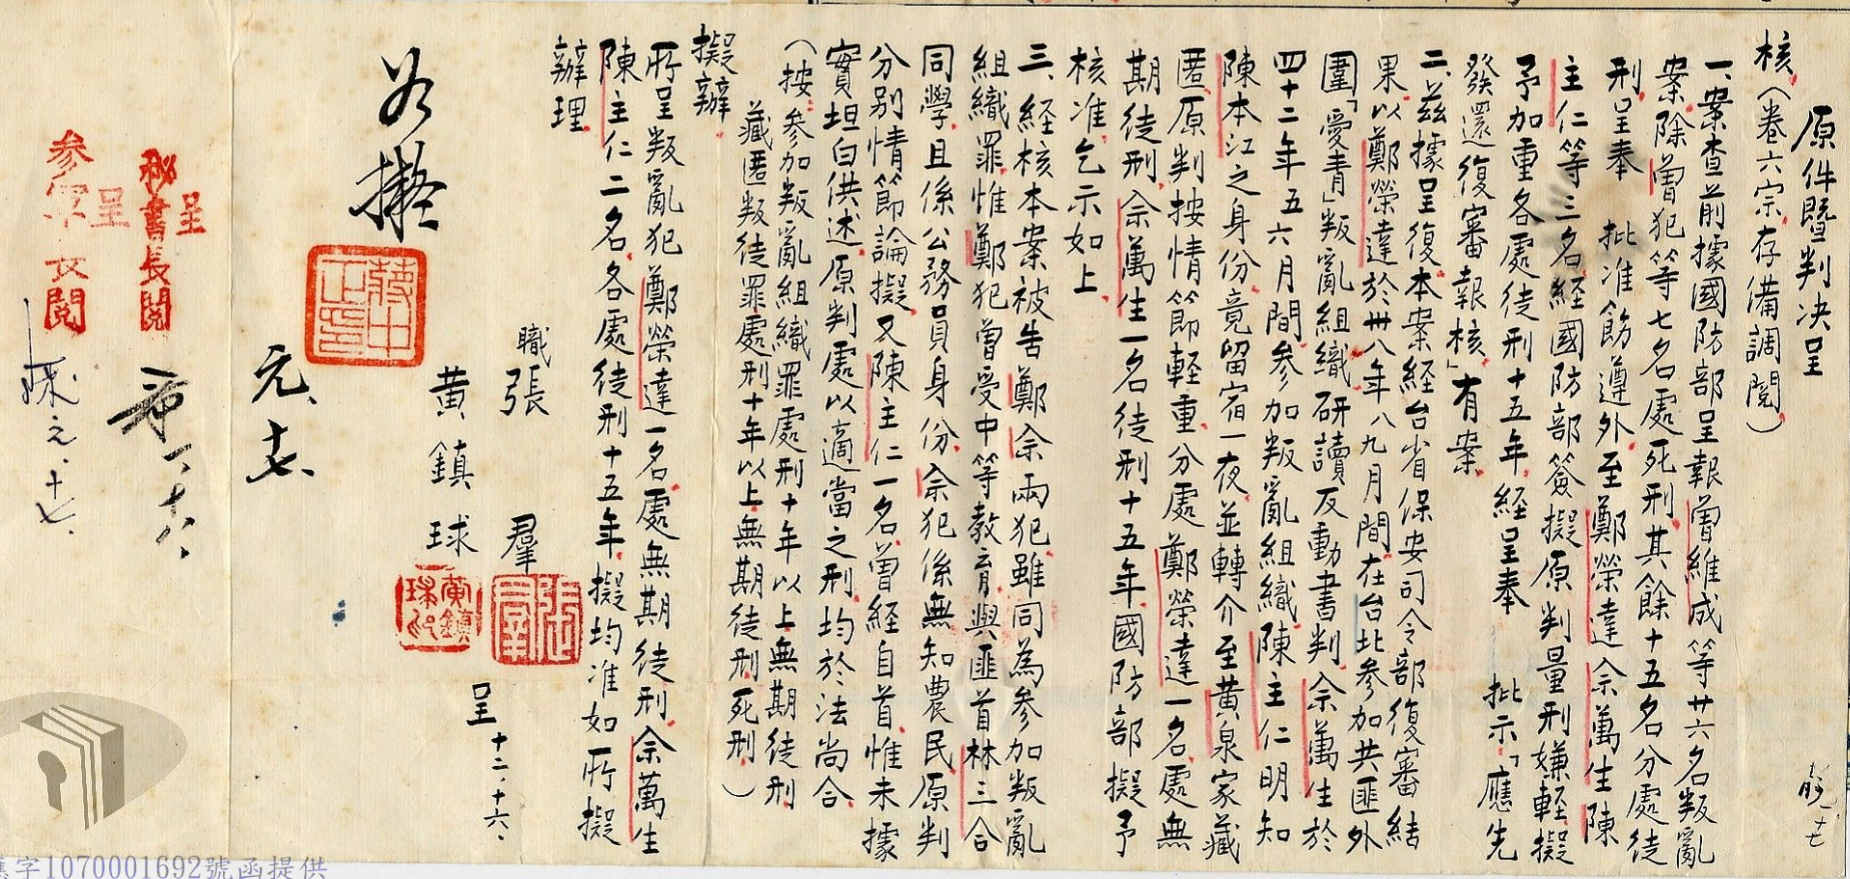 原件暨判決呈
核。（卷六宗存備調閱。）
一、案查前據國防部呈報曾維成等廿六名叛亂
案，除曾犯等七名處死刑，其餘十五名分處徒
刑，呈奉　批准飭遵外，至鄭榮達、佘萬生、陳
主仁等三名，經國防部簽擬原判量刑嫌輕，擬
予加重各處徒刑十五年，經呈奉　批示「應先
發還復審報核」有案。
二、茲據呈復本案經台省保安司令部復審結
果，以鄭榮達於卅八年八九月間，在台北參加共匪外
圍「愛青」叛亂組織，研讀反動書刊，佘萬生於
四十二年五六月間，參加叛亂組織，陳主仁明知
陳本江之身份，竟留宿一夜，並轉介至黃泉家藏
匿，原判按情節輕重，分處鄭榮達一名，處無
期徒刑，佘萬生一名徒刑十五年，國防部擬予
核准，乞示如上。
三、經核本案被告鄭、佘兩犯，雖同為參加叛亂
組織罪，惟鄭犯曾受中等教育，與匪首林三合
同學，且係公務員身份，佘犯係無知農民，原判
分別情節論擬，又陳主仁一名，曾經自首，惟未據
實坦白供述，原判處以適當之刑，均於法尚合。
（按：參加叛亂組織罪處刑十年以上無期徒刑
藏匿叛徒罪處刑十年以上無期徒刑、死刑）
擬辦：
所呈叛亂犯鄭榮達一名，處無期徒刑，佘萬生、
陳主仁二名，各處徒刑十五年，擬均准如所擬
辦理。
職張　羣
黃鎮球
呈　十二、十六、
黃鎮球印
張羣
如擬
蔣中正印
元、十七、
呈
秘書長閱
呈
參軍長閱
一、十六、
元、十七、
字1070001692號函提供